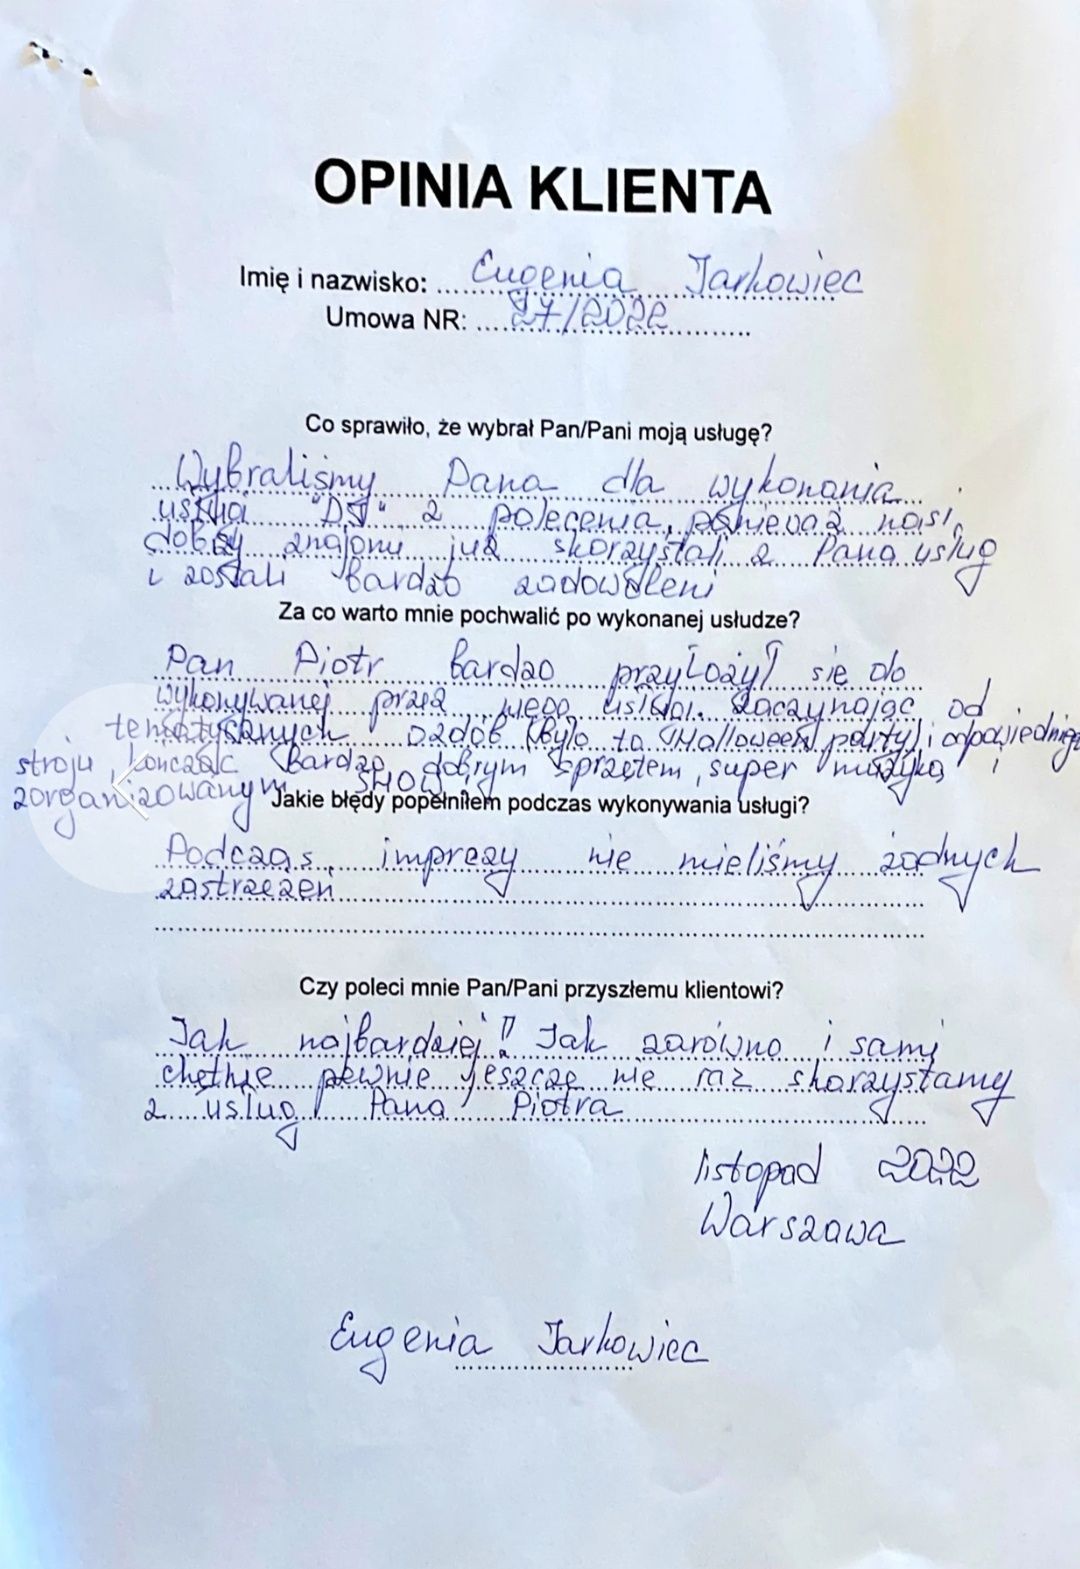 OPINIA KLIENTA
Imię i nazwisko: Eugenia Jarkowiec
Umowa NR: 27/2022
Co sprawiło, że wybrał Pan/Pani moją usługę?
Wybraliśmy Pana dla wykonania
"DJ" z polecenia, ponieważ nasi
dobrzy znajomi już skorzystali z Pana usług
i zostali bardzo zadowoleni
Za co warto mnie pochwalić po wykonanej usłudze?
Pan Piotr bardzo przyłożył się do
wykonywanej przez niego usługi. Zaczynając od
tematycznych ozdób (było to Halloween party) i odpowiedniego
stroju, kończąc bardzo dobrym sprzętem, super muzyką i
zorganizowanym SHOW
Jakie błędy popełniłem podczas wykonywania usługi?
Podczas imprezy nie mieliśmy żadnych
zastrzeżeń
Czy poleci mnie Pan/Pani przyszłemu klientowi?
Jak najbardziej! Jak zarówno i sami
chętnie pewnie jeszcze nie raz skorzystamy
z usług Pana Piotra
listopad 2022
Warszawa
Eugenia Jarkowiec